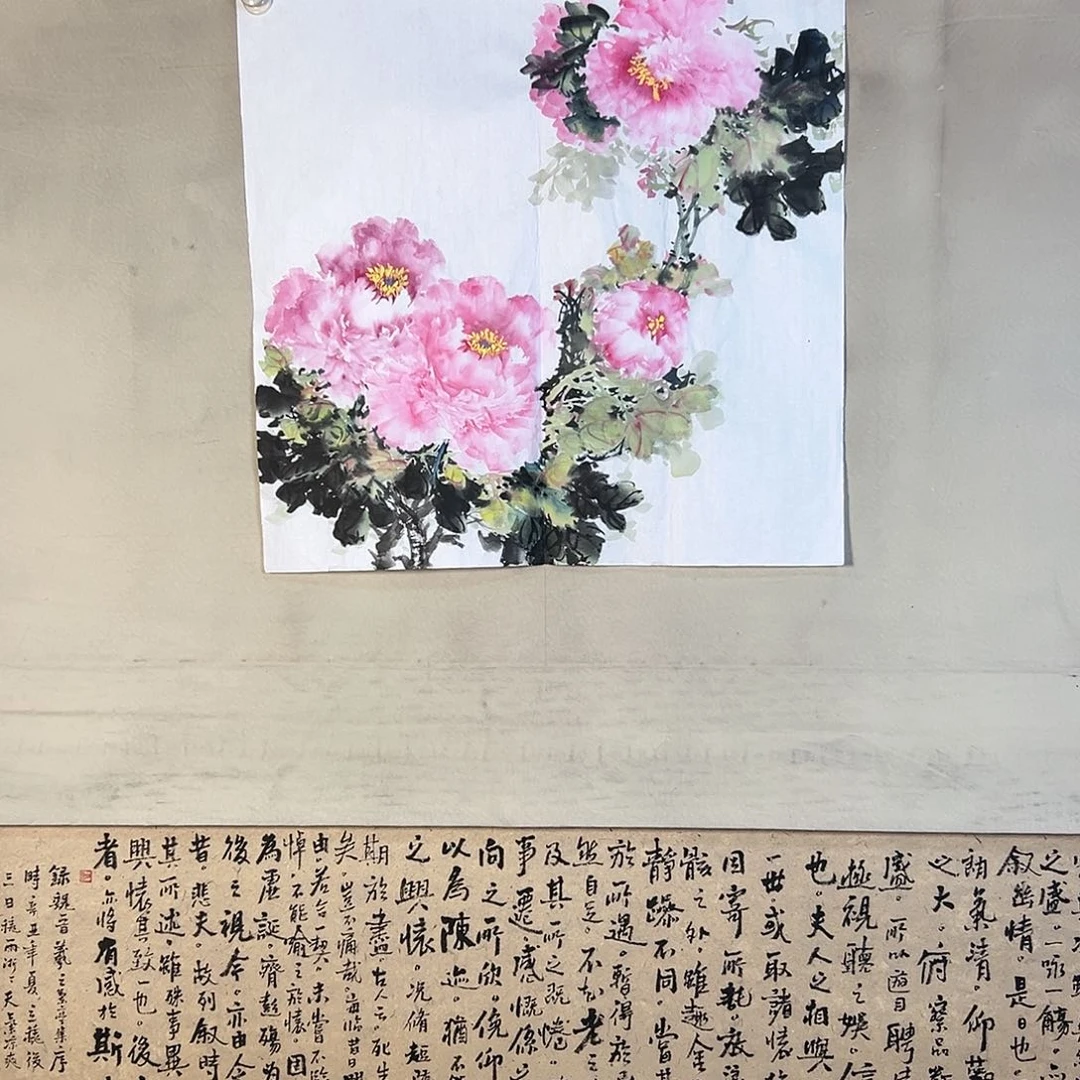 之盛。一咏一觴。
叙幽情。是日也。
朗氣清。仰觀
之大。俯察品類
盛。所以遊目騁
極視聽之娛。信
也。夫人之相與
一世。或取諸懷
因寄所託。放浪
骸之外。雖趣舍
靜躁不同。當
於所遇。暫得於
然自足。不知老之
及其所之既惓。
事遷。感慨係之
向之所欣。俛仰
以為陳迹。猶不
之興懷。况脩短隨
期於盡。古人云。死生
矣。豈不痛哉。每臨昔日興
由。若合一契。未嘗不臨
悼。不能喻之於懷。固
為虛誕。齊彭殤為
後之視今。亦由今
昔。悲夫。故列叙時
其所述。雖殊事異
興懷。其致一也。後
者。亦將有感於斯
錄 晉羲之蘭亭集序
時辛丑年夏 後
三日 雨 天氣涼爽